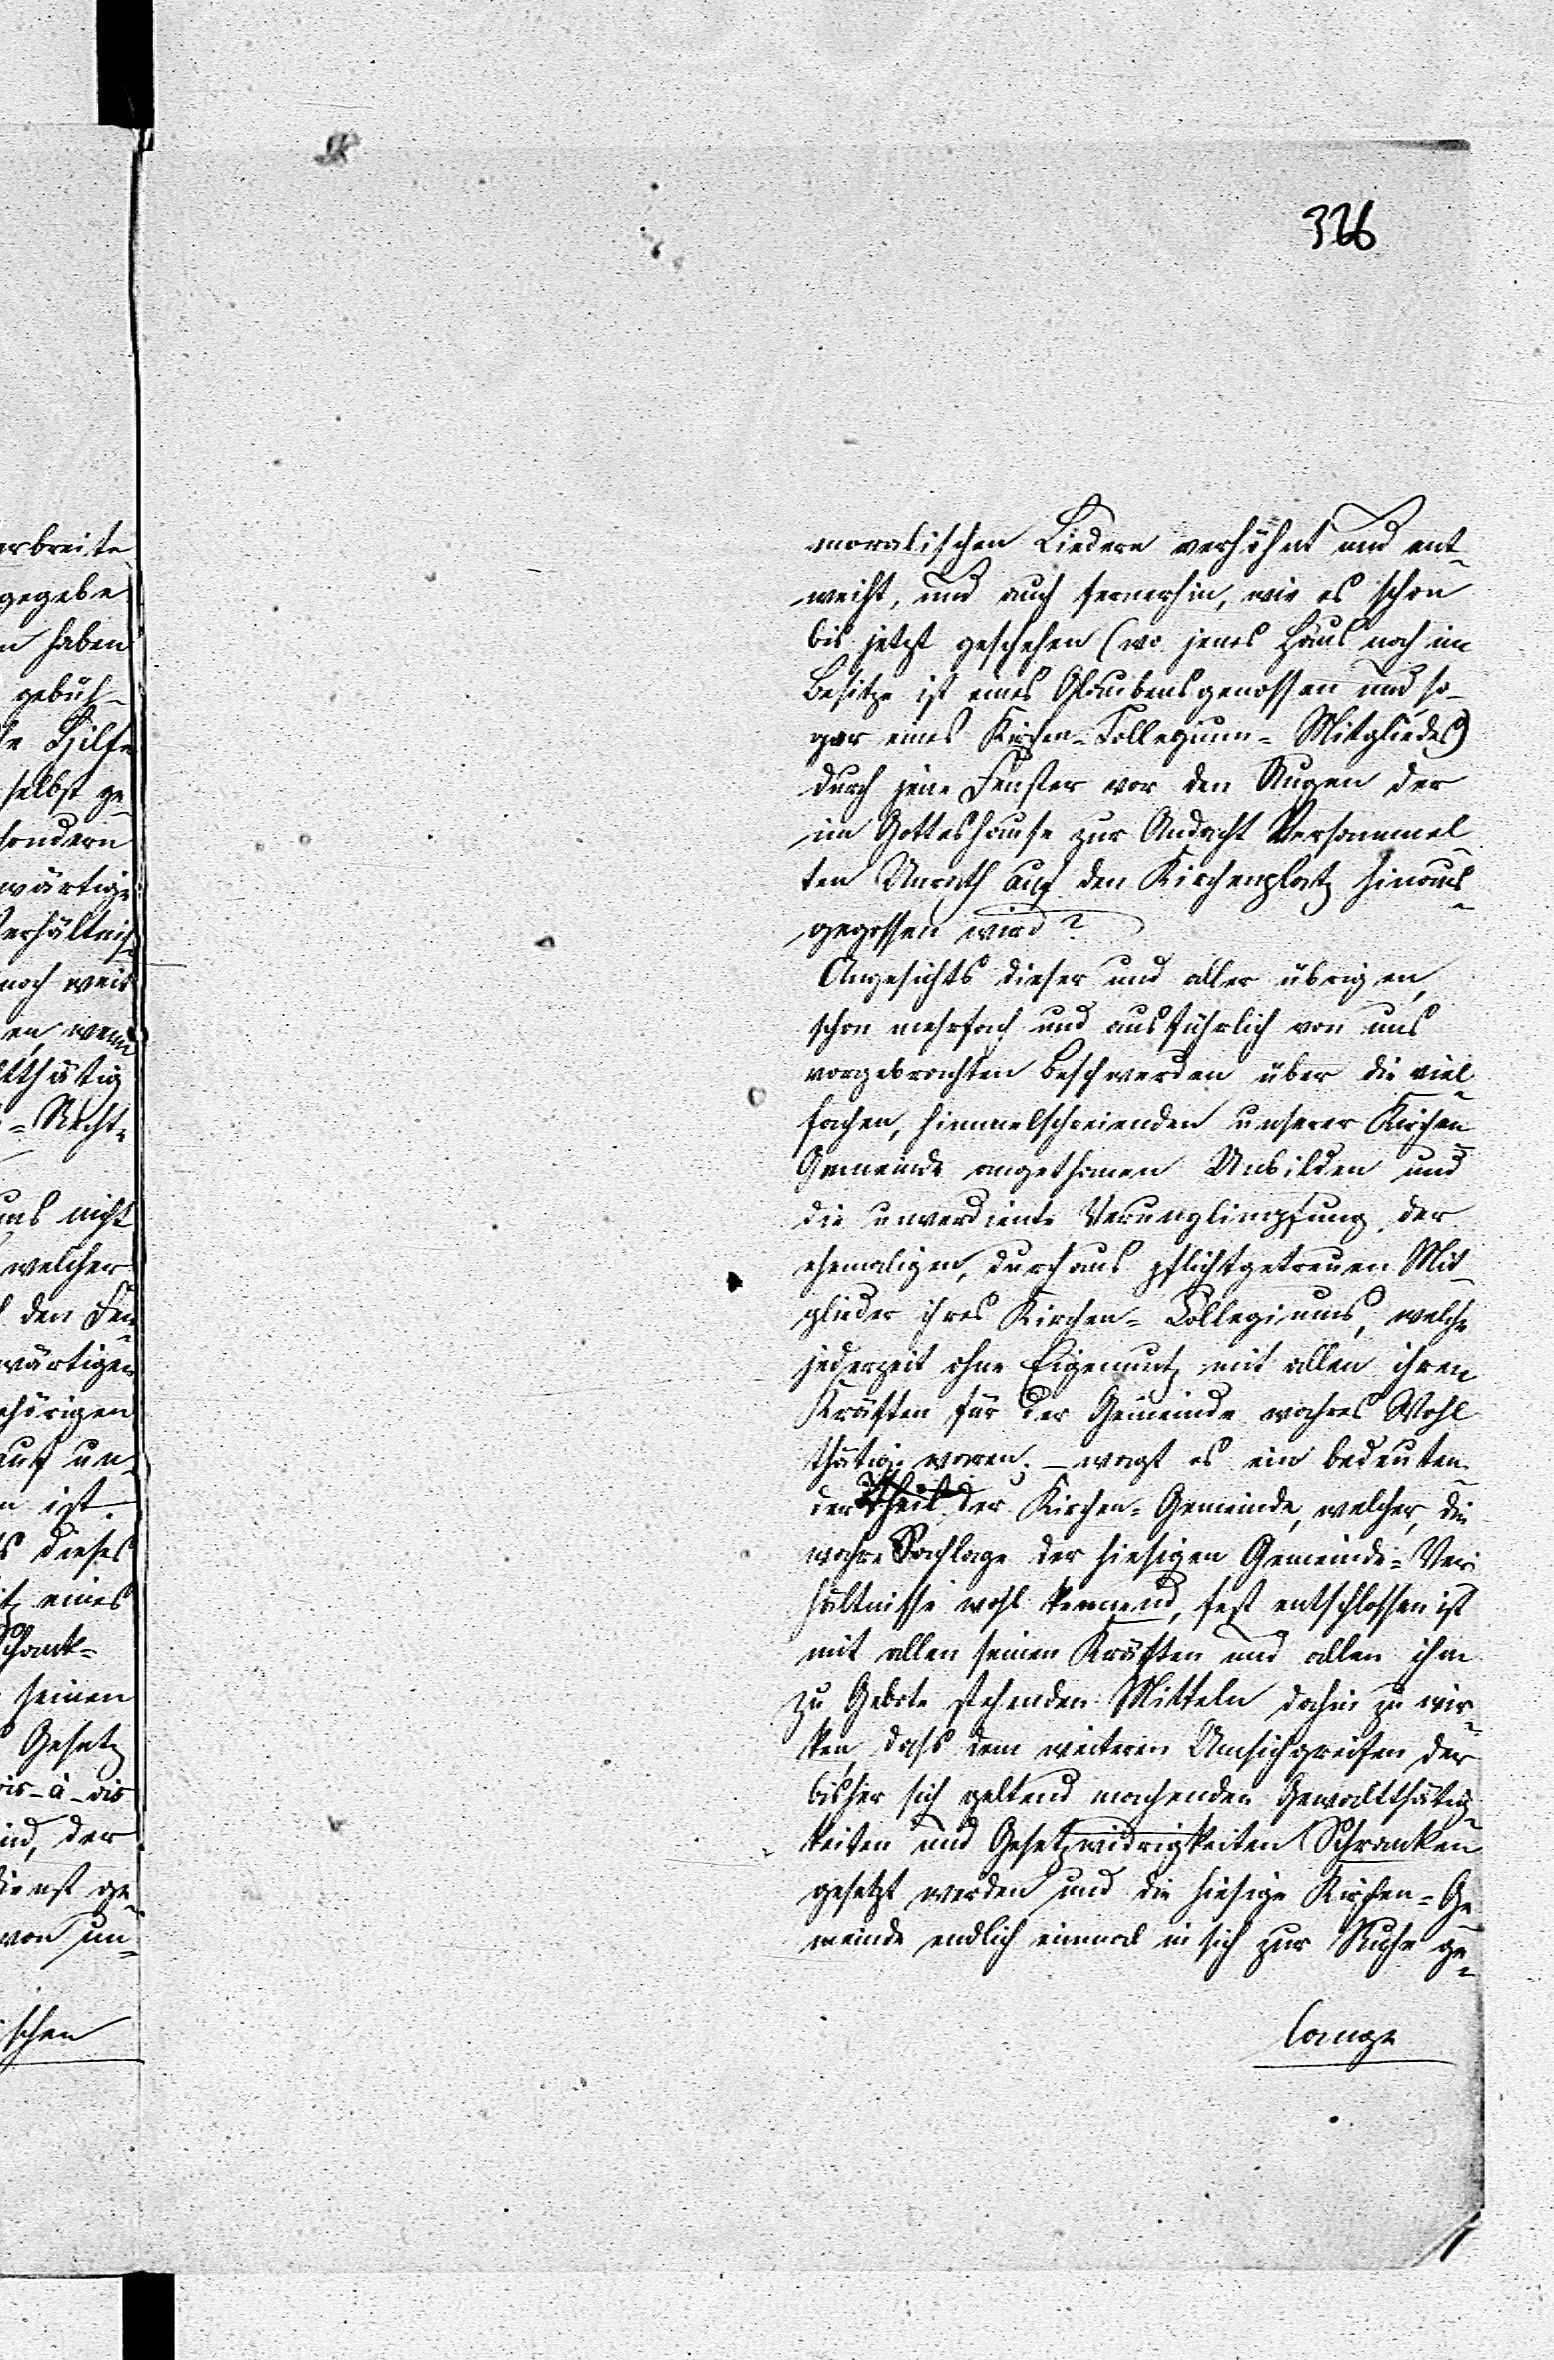 326
erbreite
gegebe
n haben
gebüh-
le Hilfe
selbst ge-
sondern
wärtige
Verhältniß-
noch weit
en, wenn
ltthätig
-Recht-
uns nicht
welcher
den Fen-
wärtigen
ehörigen
auf un-
n ist.
s dieses
itz eines
Schank-
seinen
Gesetz
vis-à-vis
ind, der
dienst ge-
von un-
ischen
moralischen Liedern verhöhnt und ent-
weiht, und auch fernerhin, wie es schon
bis jetzt geschehen (wo jenes Haus noch im
Besitze ist eines Glaubensgenossen und so-
gar eines Kirchen-Collegium-Mitgliedes)
durch jene Fenster vor den Augen der
im Gotteshause zur Andacht Versammel-
ten Unrath auf den Kirchenplatz hinaus-
gegossen wird?
Angesichts dieser und aller übrigen,
schon mehrfach und ausführlich von uns
vorgebrachten Beschwerden über die viel-
fachen, himmelschreienden unserer Kirchen-
Gemeinde angethanen Unbilden und
die unverdiente Verunglimpfung der
ehemaligen, durchaus pflichtgetreuen Mit-
glieder ihres Kirchen-Collegiums, welche
jederzeit ohne Eigennutz mit allen ihren
Kräften für der Gemeinde wahres Wohl
thätig waren, – wagt es ein bedeuten-
der Theil der Kirchen-Gemeinde, welcher, die
wahre Sachlage der hiesigen Gemeinde-Ver-
hältnisse wohl kennend, fest entschlossen ist
mit allen seinen Kräften und allen ihm
zu Gebote stehenden Mitteln dahin zu wir-
ken, daß dem weiteren Umsichgreifen der
bisher sich geltend machenden Gewaltthätig-
keiten und Gesetzwidrigkeiten Schranken
gesetzt werden und die hiesige Kirchen-Ge-
meinde endlich einmal in sich zur Ruhe ge-
lange